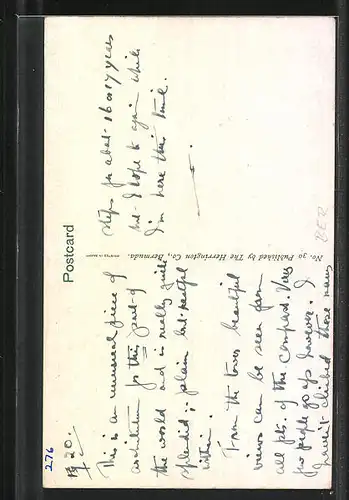 276
Postcard
No. 30 Published by The Herrington Co., Bermuda.
BER
This is an unusual piece of
architecture for this part of
the world and is really quite
splendid; plain but restful
within.
From the tower beautiful
views can be seen from
all pts. of the compass. Very
few people go up however. I
haven't climbed those many
steps for about 16 or 17 years
but I hope to again while
I'm here this time.